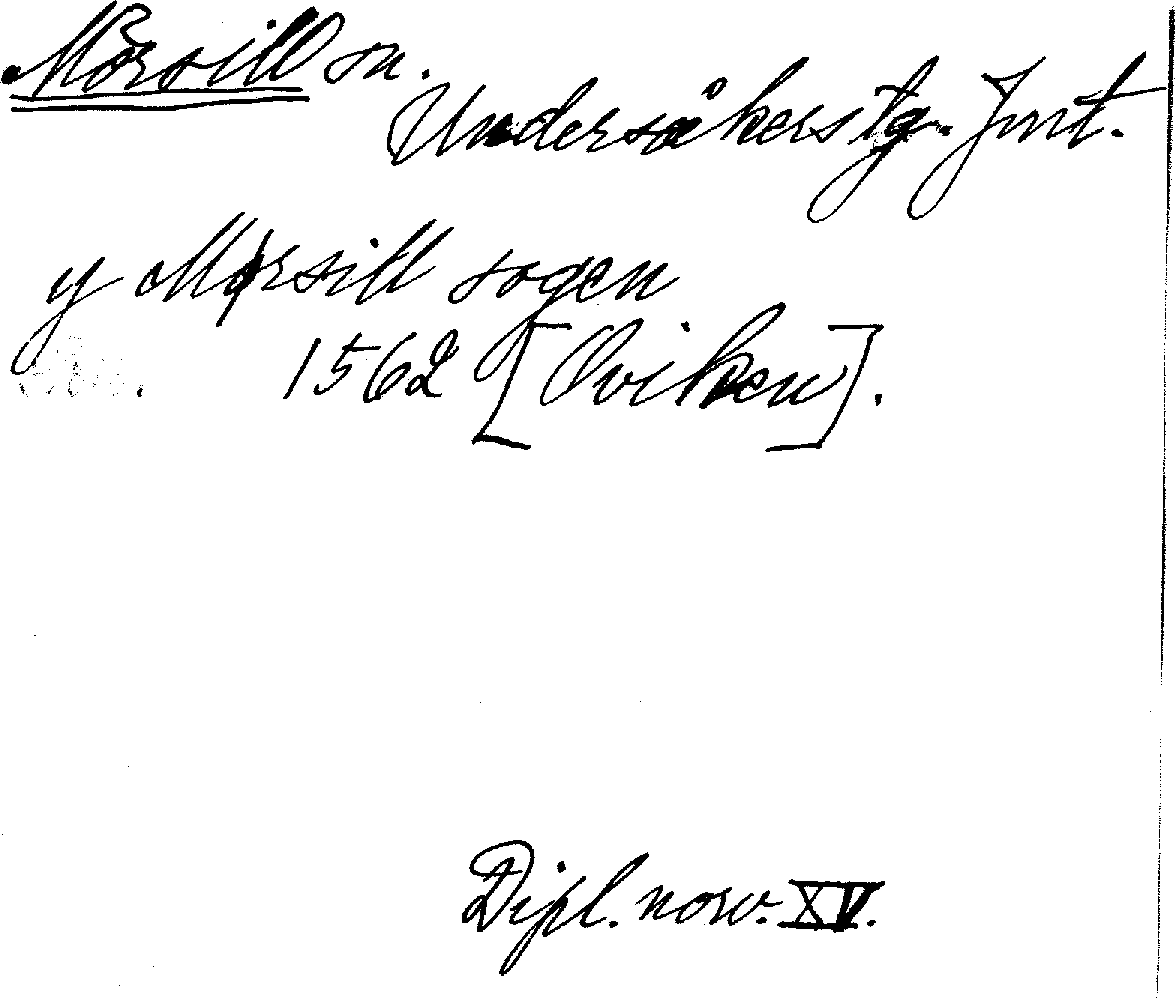 Mörsill sn.
Undersåkers tg. Jmt.
y Mørsill sogen
1562 [Oviken].
Dipl. norv. XV.